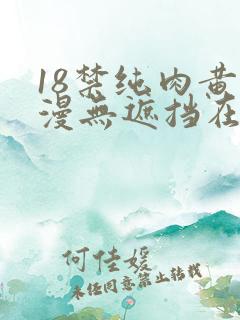 18禁纯肉黄
漫無遮挡在
何佳媛
未经同意禁止转载